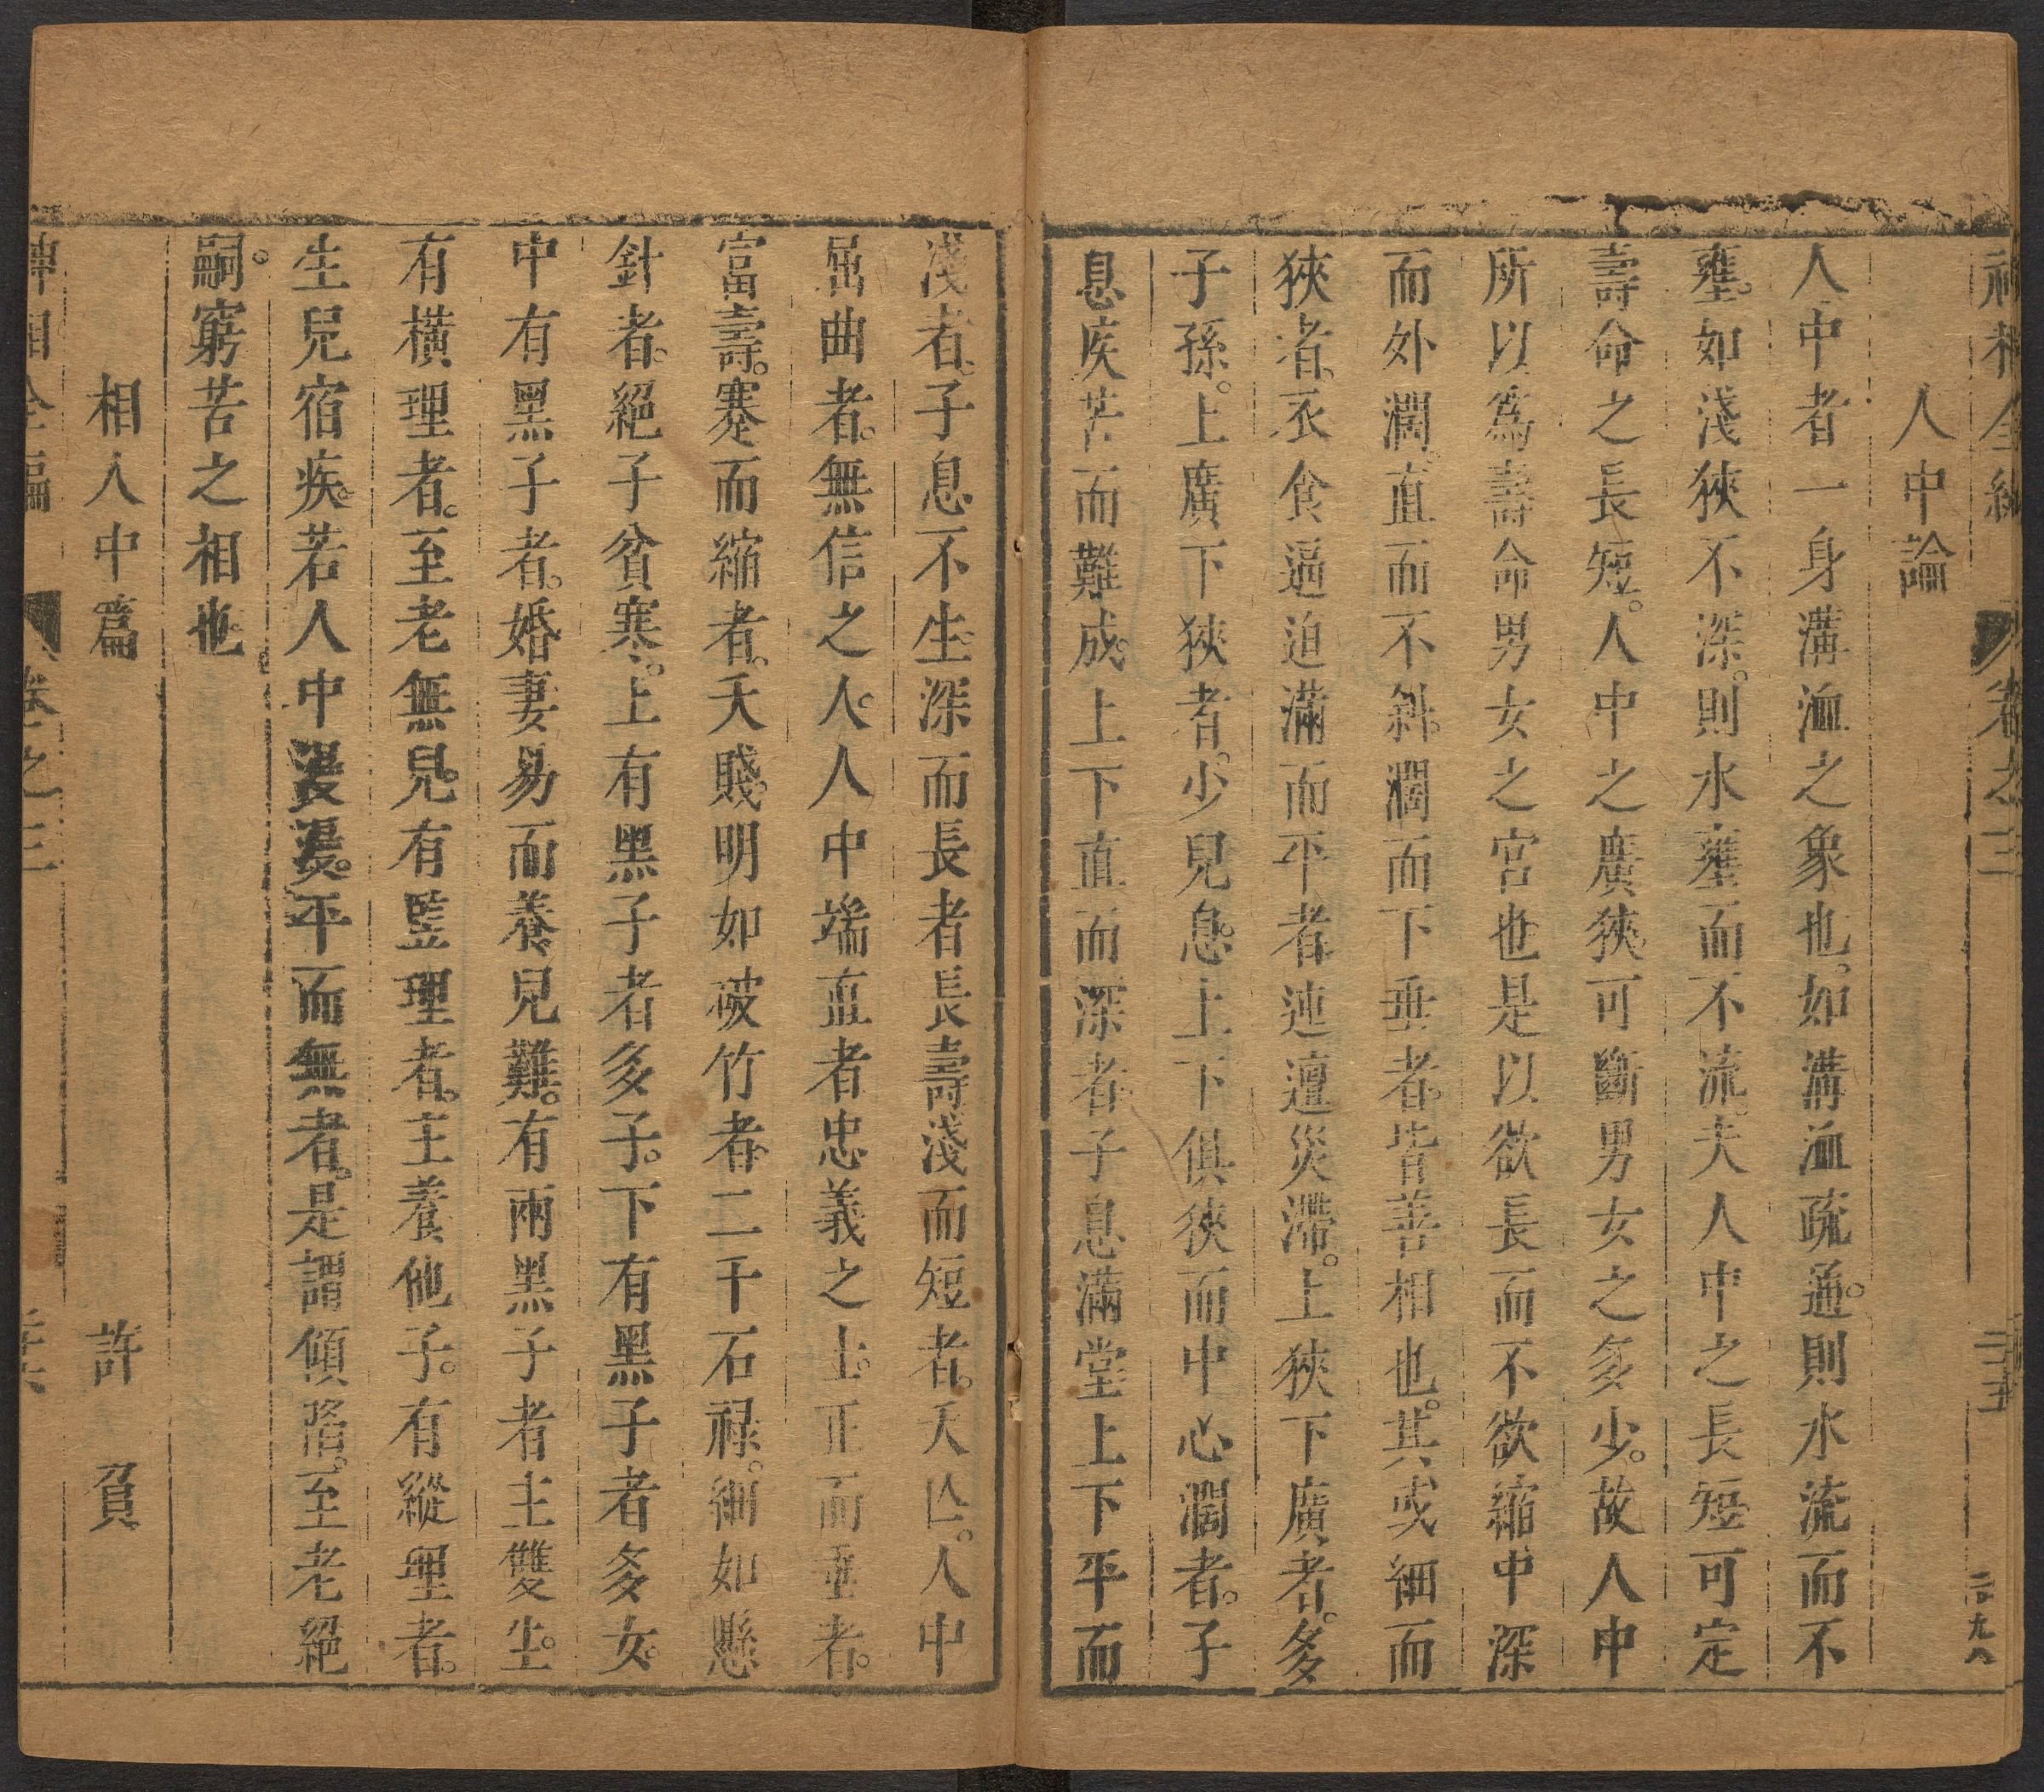 神相全編 卷之三 二十五 二百九八
人中論
人中者一身溝洫之象也。如溝洫疏通。則水流而不
壅。如淺狹不深。則水壅而不流。夫人中之長短可定
壽命之長短。人中之廣狹。可斷男女之多少。故人中
所以爲壽命男女之宮也是以欲長而不欲縮中深
而外濶。直而不斜。濶而下垂者。皆善相也。其或細而
狹者。衣食逼迫滿而平者。迍邅災滯。上狹下廣者。多
子孫。上廣下狹者。少兒息。上下俱狹而中心濶者。子
息疾苦而難成。上下直而深者。子息滿堂上下平而
淺者。子息不生。深而長者長壽淺而短者。夭亾。人中
屈曲者。無信之人。人中端直者忠義之士。正而垂者。
富壽。蹇而縮者。夭賤。明如破竹者。二千石祿。細如懸
針者。絕子貧寒。上有黑子者多子。下有黑子者多女。
中有黑子者。婚妻易而養兒難。有兩黑子者主雙生。
有橫理者。至老無兒。有豎理者。主養他子。有縱理者。
生兒宿疾。若人中漫漫。平而無者。是謂傾陷。至老絕
嗣。窮苦之相也。
相人中篇 許 負
神相全編 卷之三